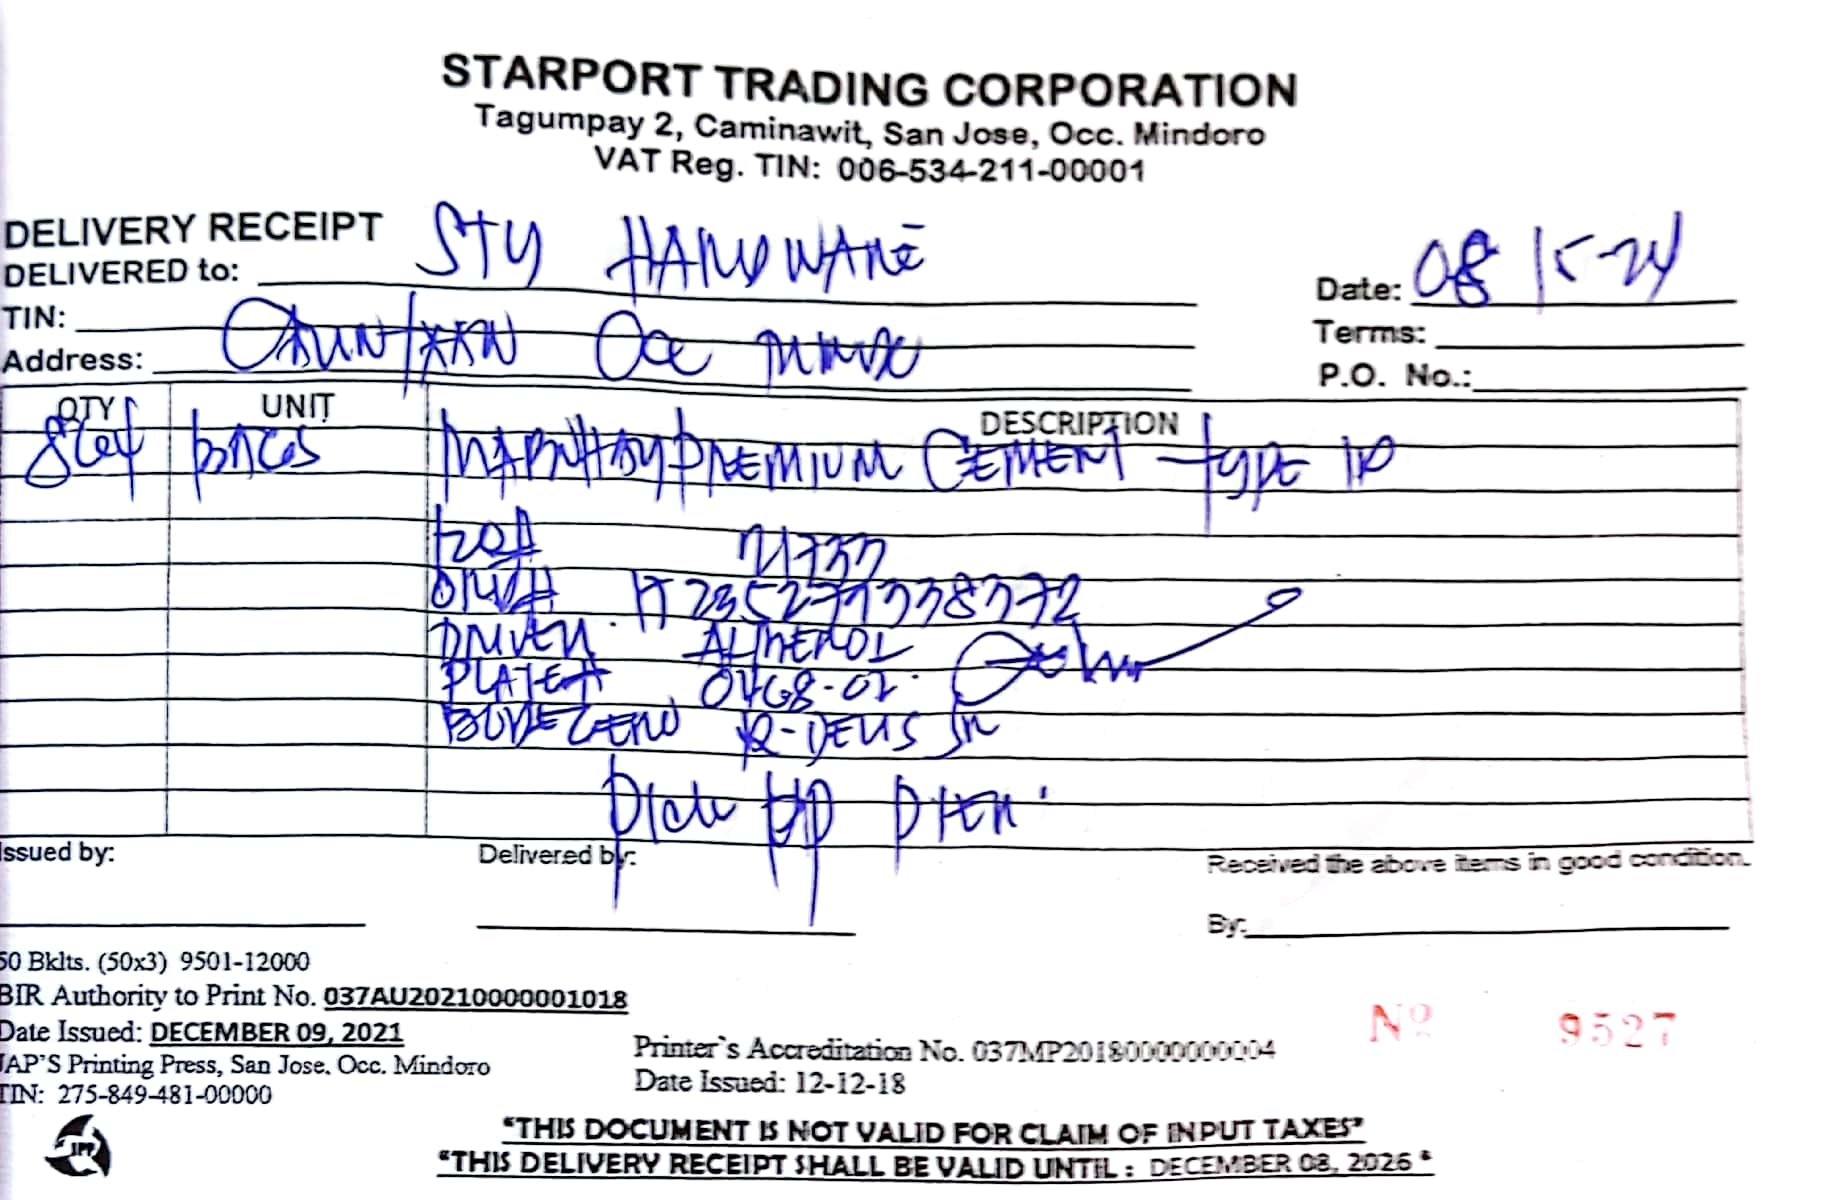 STARPORT TRADING CORPORATION
Tagumpay 2, Caminawit, San Jose, Occ. Mindoro
VAT Reg. TIN: 006-534-211-00001
DELIVERY RECEIPT
DELIVERED to: STY HARDWARE
Date: 08 15-24
TIN:
Terms:
Address: Occ
P.O. No.:
QTY UNIT DESCRIPTION
BAGS PREMIUM CEMENT TYPE 1P
DRIVER ALMEROL
PLATE#
Pick UP PIER
Issued by:
Delivered by:
Received the above items in good condition.
By:
50 Bklts. (50x3) 9501-12000
BIR Authority to Print No. 037AU20210000001018
Date Issued: DECEMBER 09, 2021
JAP'S Printing Press, San Jose. Occ. Mindoro
TIN: 275-849-481-00000
Printer's Accreditation No. 037MP20180000000004
Date Issued: 12-12-18
Nº 9527
JPP
"THIS DOCUMENT IS NOT VALID FOR CLAIM OF INPUT TAXES"
"THIS DELIVERY RECEIPT SHALL BE VALID UNTIL : DECEMBER 08, 2026 "